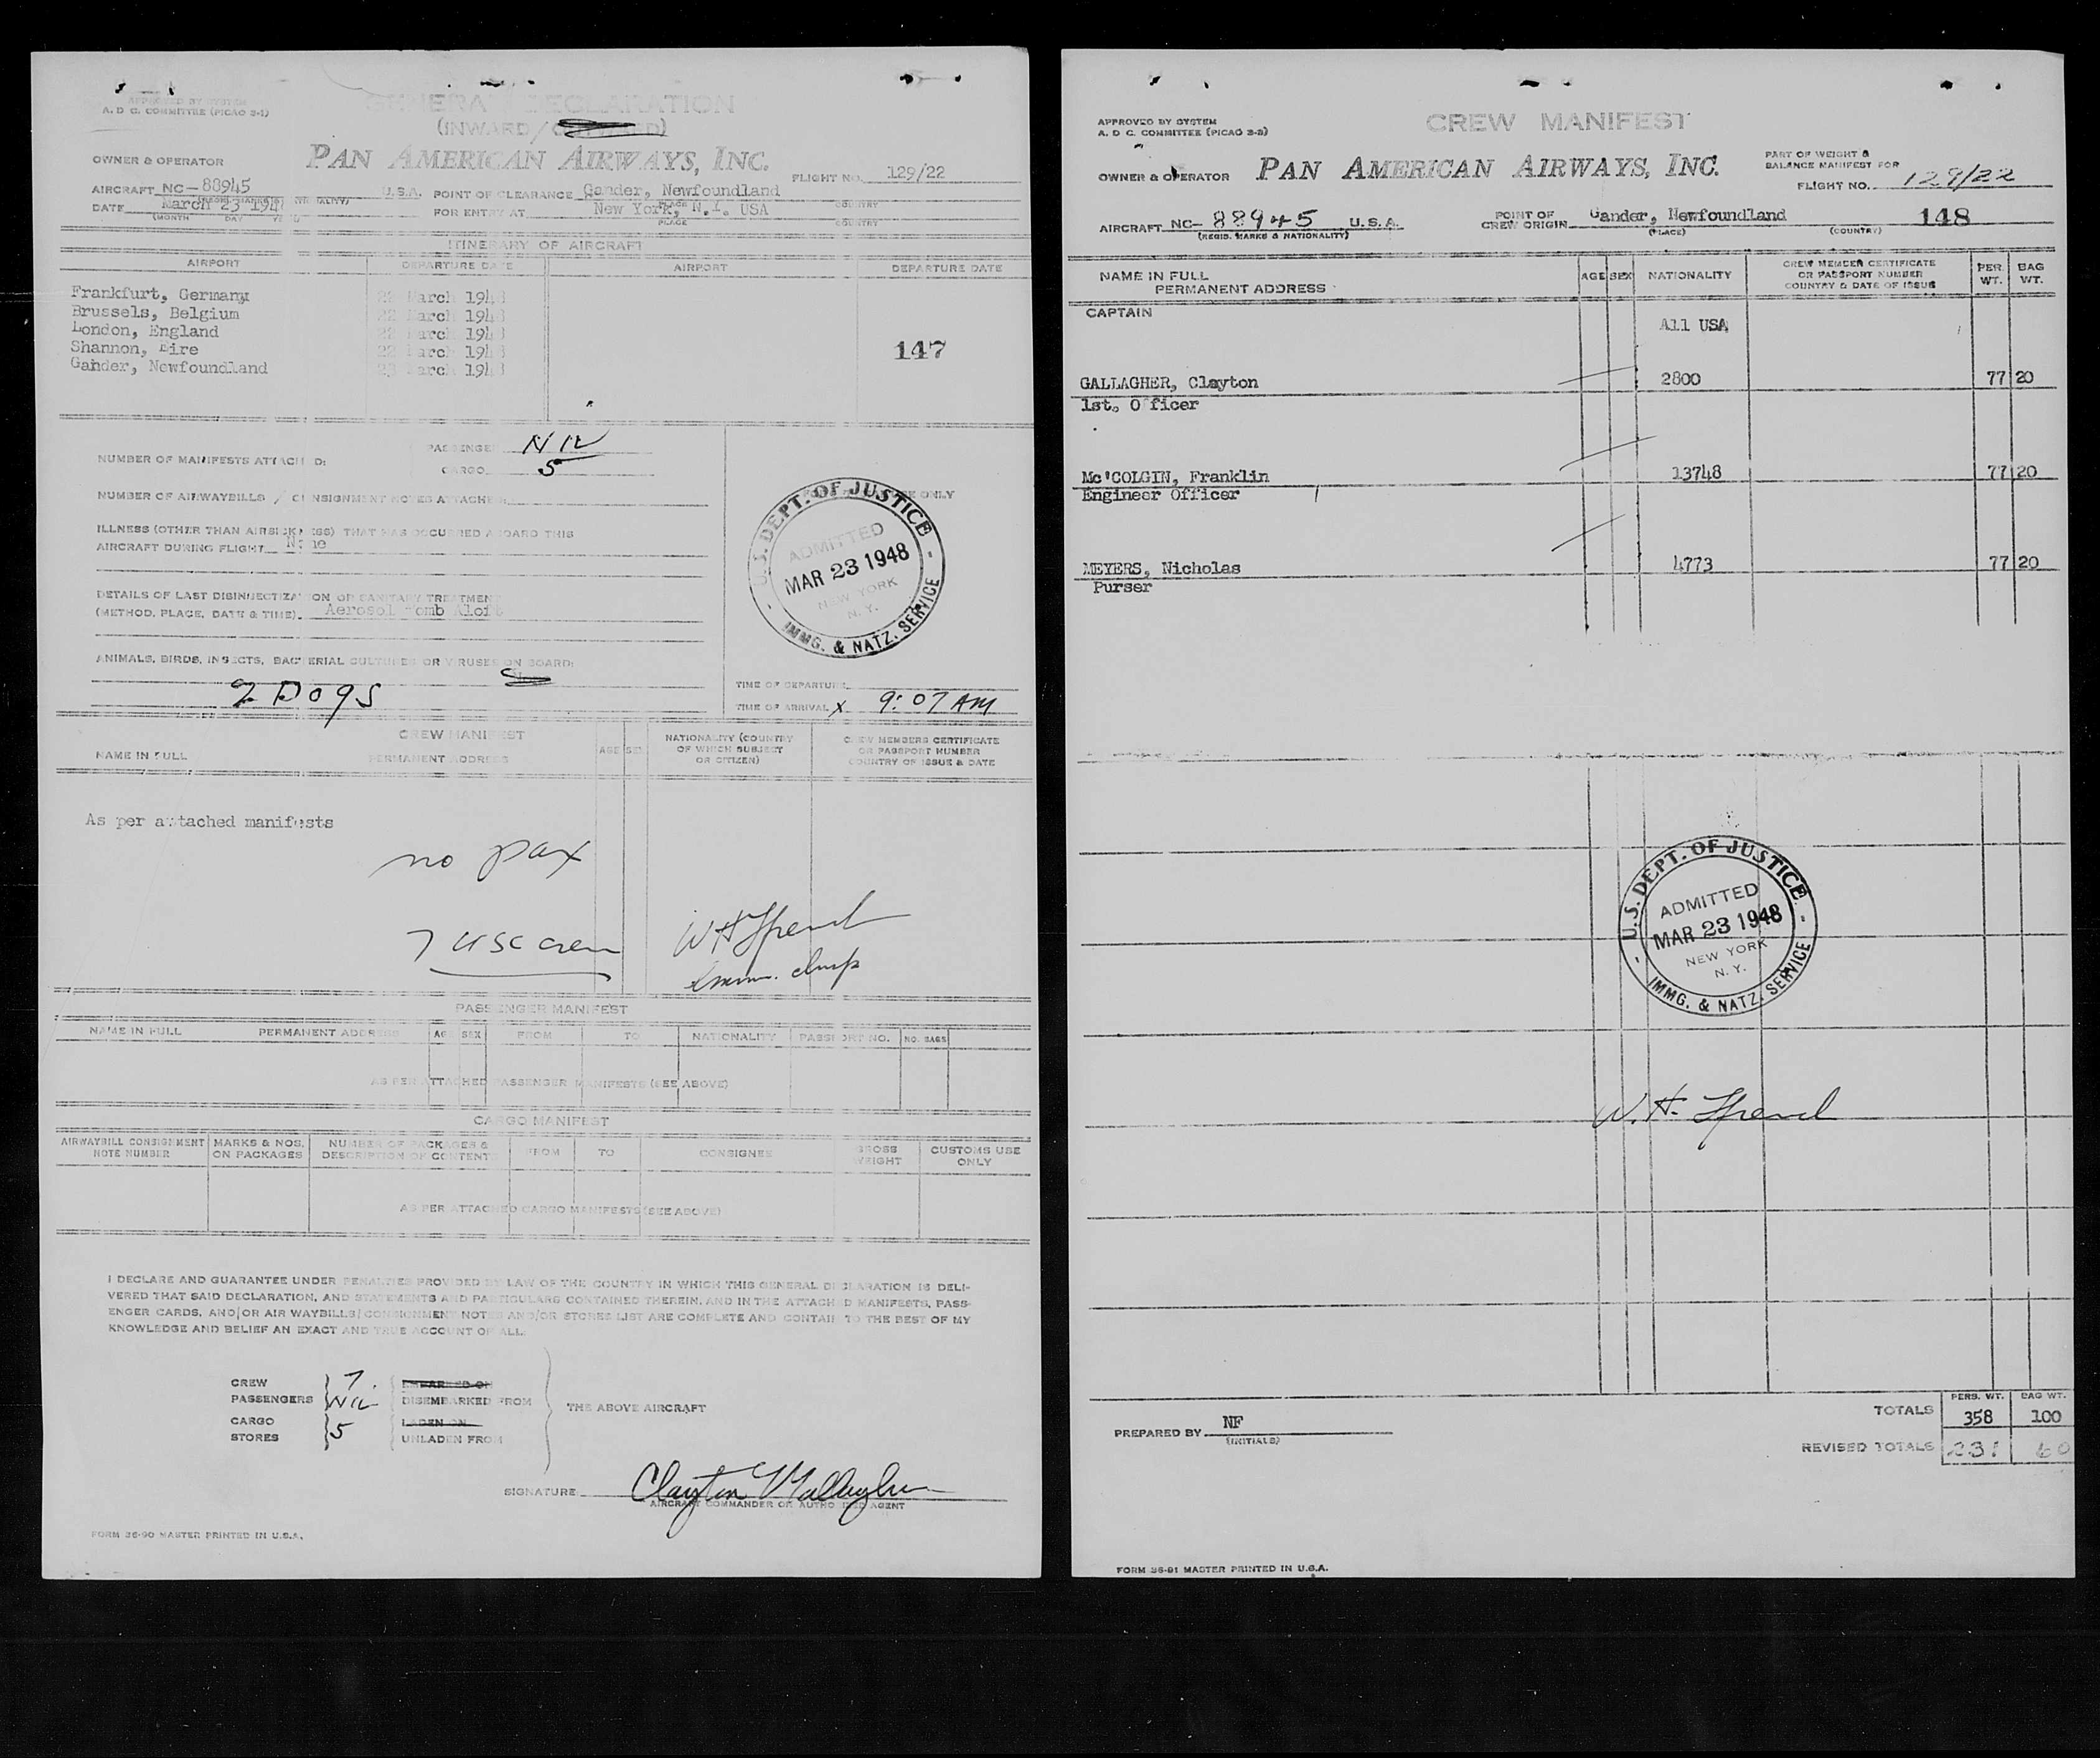 APPROVED BY SYSTEM
A. D. C. COMMITTEE (PICAO 3-1)
GENERAL DECLARATION
(INWARD/OUTWARD)
OWNER & OPERATOR
PAN AMERICAN AIRWAYS, INC.
FLIGHT NO. 129/22
AIRCRAFT NC-88945 U.S.A. POINT OF CLEARANCE Gander, Newfoundland
DATE March 23 194 FOR ENTRY AT New York, N.Y. USA
(MONTH DAY PLACE COUNTRY
ITINERARY OF AIRCRAFT
AIRPORT DEPARTURE DATE AIRPORT DEPARTURE DATE
Frankfurt, Germany 22 March 1948
Brussels, Belgium 22 March 1948
London, England 22 March 1948
Shannon, Eire 22 March 1948
Gander, Newfoundland 23 March 1948
147
NUMBER OF MANIFESTS ATTACHED:
PASSENGER NIL
CARGO 5
NUMBER OF AIRWAYBILLS / CONSIGNMENT NOTES ATTACHED:
USE ONLY
ILLNESS (OTHER THAN AIRSICKNESS) THAT HAS OCCURRED ABOARD THIS
AIRCRAFT DURING FLIGHT None
DETAILS OF LAST DISINSECTIZATION OR SANITARY TREATMENT
(METHOD, PLACE, DATE & TIME). Aerosol Bomb Aloft
ANIMALS, BIRDS, INSECTS, BACTERIAL CULTURES OR VIRUSES ON BOARD:
2 Dogs
U.S. DEPT. OF JUSTICE
ADMITTED
MAR 23 1948
NEW YORK
N.Y.
IMMG. & NATZ. SERVICE
TIME OF DEPARTURE
TIME OF ARRIVAL X 9:07 AM
CREW MANIFEST
NAME IN FULL PERMANENT ADDRESS AGE SEX NATIONALITY (COUNTRY OF WHICH SUBJECT OR CITIZEN) CREW MEMBERS CERTIFICATE OR PASSPORT NUMBER COUNTRY OF ISSUE & DATE
As per attached manifests
no pax
7 USC crew
Imm. Insp
PASSENGER MANIFEST
NAME IN FULL PERMANENT ADDRESS AGE SEX FROM TO NATIONALITY PASSPORT NO. NO. BAGS
AS PER ATTACHED PASSENGER MANIFESTS (SEE ABOVE)
CARGO MANIFEST
AIRWAYBILL CONSIGNMENT NOTE NUMBER MARKS & NOS. ON PACKAGES NUMBER OF PACKAGES & DESCRIPTION OF CONTENTS FROM TO CONSIGNEE GROSS WEIGHT CUSTOMS USE ONLY
AS PER ATTACHED CARGO MANIFESTS (SEE ABOVE)
I DECLARE AND GUARANTEE UNDER PENALTIES PROVIDED BY LAW OF THE COUNTRY IN WHICH THIS GENERAL DECLARATION IS DELI-
VERED THAT SAID DECLARATION, AND STATEMENTS AND PARTICULARS CONTAINED THEREIN, AND IN THE ATTACHED MANIFESTS, PASS-
ENGER CARDS, AND/OR AIR WAYBILLS/CONSIGNMENT NOTES AND/OR STORES LIST ARE COMPLETE AND CONTAIN TO THE BEST OF MY
KNOWLEDGE AND BELIEF AN EXACT AND TRUE ACCOUNT OF ALL:
CREW 7 EMBARKED ON
PASSENGERS NIL DISEMBARKED FROM THE ABOVE AIRCRAFT
CARGO 5 LADEN ON
STORES UNLADEN FROM
SIGNATURE Clayton Gallagher
AIRCRAFT COMMANDER OR AUTHORIZED AGENT
FORM 36-90 MASTER PRINTED IN U.S.A.
APPROVED BY SYSTEM
A. D. C. COMMITTEE (PICAO 3-3)
CREW MANIFEST
OWNER & OPERATOR PAN AMERICAN AIRWAYS, INC.
PART OF WEIGHT &
BALANCE MANIFEST FOR
FLIGHT NO. 129/22
AIRCRAFT NC-88945 U.S.A.
(REGIS. MARKS & NATIONALITY)
POINT OF CREW ORIGIN Gander, Newfoundland 148
(PLACE) (COUNTRY)
NAME IN FULL PERMANENT ADDRESS AGE SEX NATIONALITY CREW MEMBER CERTIFICATE OR PASSPORT NUMBER COUNTRY & DATE OF ISSUE PER. WT. BAG WT.
CAPTAIN
All USA
GALLAGHER, Clayton 2800 77 20
1st. Officer
Mc'COLGIN, Franklin 13748 77 20
Engineer Officer
MEYERS, Nicholas 4773 77 20
Purser
U.S. DEPT. OF JUSTICE
ADMITTED
MAR 23 1948
NEW YORK
N.Y.
IMMG. & NATZ. SERVICE
PERS. WT. BAG WT.
TOTALS 358 100
PREPARED BY NF
(INITIALS)
REVISED TOTALS 231 60
FORM 36-91 MASTER PRINTED IN U.S.A.